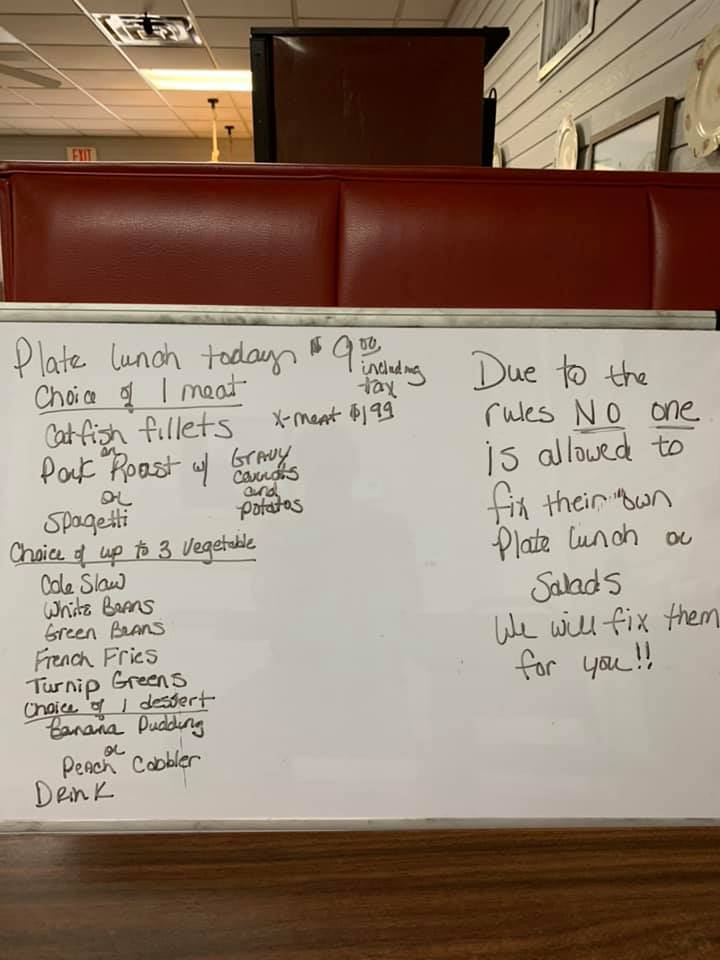 EXIT
Plate lunch today $ 9.00
including
tax
Choice of 1 meat
Catfish fillets X-meat $1.99
or
Pork Roast w/ Gravy
carrots
and
potatos
or
Spagetti
Choice of up to 3 vegetable
Cole Slaw
White Beans
Green Beans
French Fries
Turnip Greens
Choice of 1 dessert
Banana Pudding
or
Peach Cobbler
Drink
Due to the
rules NO one
is allowed to
fix their own
Plate lunch or
Salads
We will fix them
for you!!